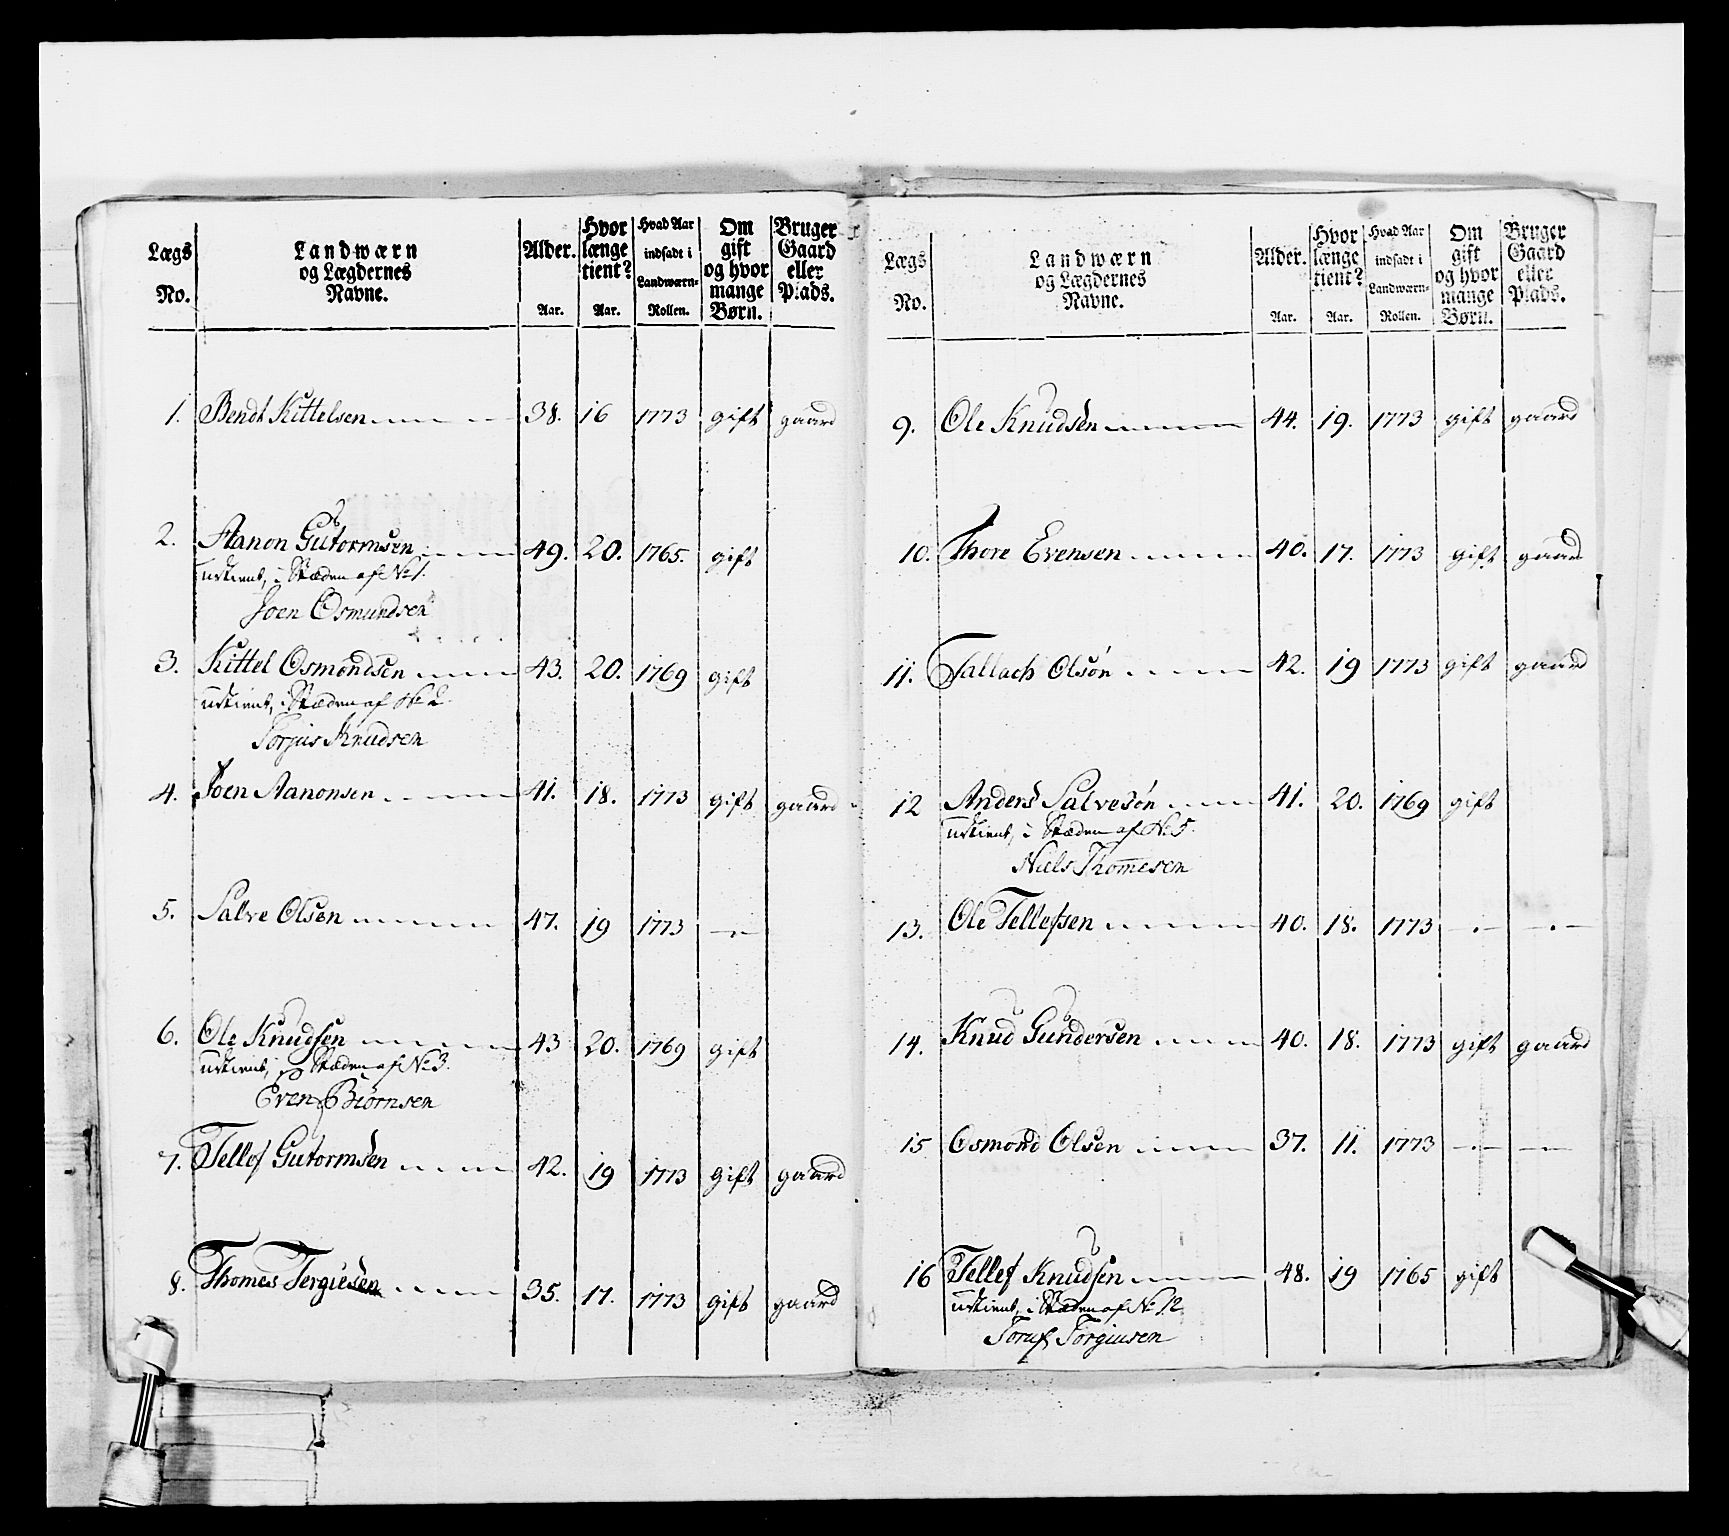 Lægs No. | Landwærn og Lægdernes Navne. | Alder. Aar. | Hvor længe tient? Aar. | Hvad Aar indsadt i Landwærn-Rollen. | Om gift og hvor mange Børn. | Bruger Gaard eller Plads.
1. Bendt Kittelsen 38. 16 1773 gift gaard
2. Aanon Gutormsen 49. 20. 1765. gift
udtient, i Stæden af No 1.
Joen Osmundsen
3. Kittel Osmondsen 43. 20. 1769 gift
udtient, i Stæden af No 2.
Torjus Knudsen
4. Joen Aanonsen 41. 18. 1773 gift gaard
5. Salve Olsen 47. 19 1773 —
6. Ole Knudsen 43 20. 1769 gift
udtient, i Stæden af No 3.
Even Biørnsen
7. Tellef Gutormsen 42. 19 1773 gift gaard
8. Thomes Tergiesen 35. 17. 1773 gift gaard
Lægs No. | Landwærn og Lægdernes Navne. | Alder. Aar. | Hvor længe tient? Aar. | Hvad Aar indsadt i Landwærn-Rollen. | Om gift og hvor mange Børn. | Bruger Gaard eller Plads.
9. Ole Knudsen 44. 19. 1773 gift gaard
10. Thore Evensen 40. 17. 1773 gift gaard
11. Tallach Olsøn 42. 19 1773 gift gaard
12 Anders Salvesøn 41. 20. 1769 gift
udtient, i Stæden af No 5.
Niels Thomesen
13. Ole Tellefsen 40. 18. 1773 — —
14. Knud Gundersen 40. 18. 1773 gift gaard
15 Osmond Olsen 37. 11. 1773 — —
16 Tellef Knudsen 48. 19 1765 gift
udtient, i Stæden af No 12
Toruf Torgiusen